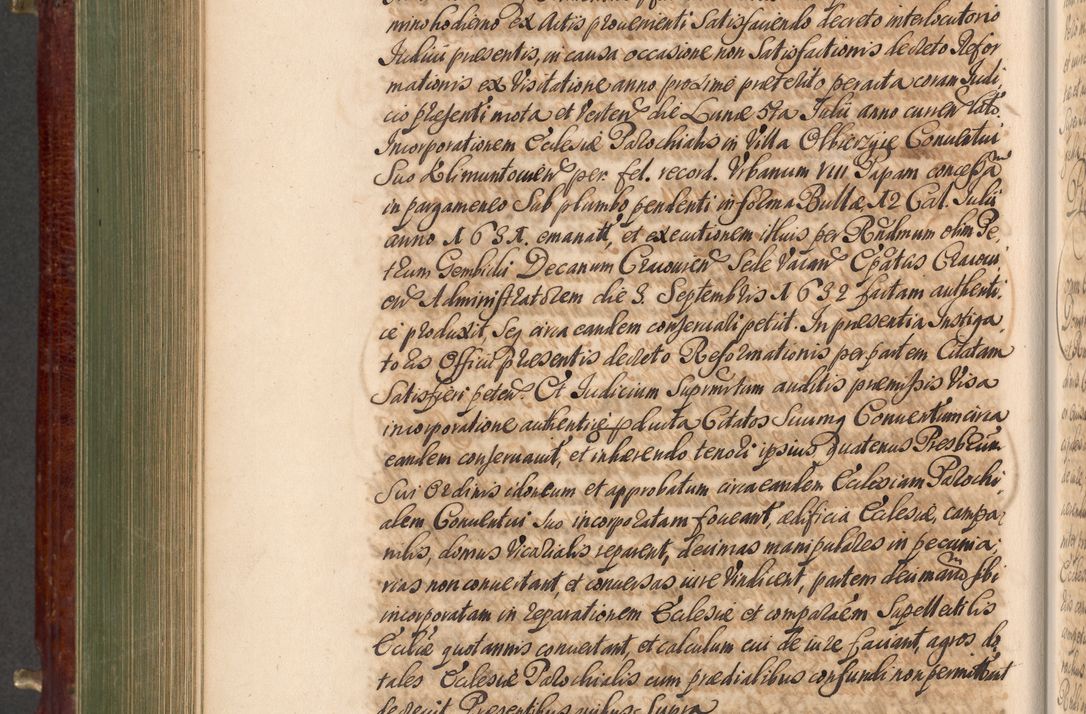 mino hodierno ex Actis provenienti Satisfaciendo decreto interlocutorio
Iudicii præsentis, in causa occasione non Satisfactionis decreto Refor
mationis ex Visitatione anno proxime præterito peracta coram Iudi
cio præsenti mota et Verten die Lunæ 5ta Iulii anno curren lato.
Incorporationem Ecclesiæ Parochialis in Villa Olbierzyce Conventui
Suo Klimuntovien per fel. record. Urbanum VIII Papam concessam
in pargameneo Sub plumbo pendenti in forma Bullæ 12 Cal. Iulii
anno 1631. emanati, et executionem illius per Rndmum olim Pe,
trum Gembicki Decanum Cracovien Sede Vacan Epatus Cracovi
en Administratorem die 3. Septembris 1632 factam authenti,
ce produxit, Seq circa eandem conservari petiit. In præsentia Instiga
toris Officii præsentis decreto Reformationis per partem Citatam
Satisfieri peten. Et Iudicium Supremitum auditis præmissis Visa
incorporatione authentice producta Citatos Suumq Conventum circa
eandem conservavit, et inhærendo tenori ipsius quatenus Presbrum
Sui Ordinis idoneum et approbatum circa eandem Ecclesiam Parochi,
alem, Conventui Suo incorporatam foveant, ædificia Ecclesiæ, campa
nilis, domus Vicarialis reparent, decimas manipulares in pecunia,
rias non convertant, et conversas iure Vindicent, partem decimarum sibi
incorporatam in reparationem Ecclesiæ et comparaem Supellectilis
Ecclæ quotannis convertant, et calculum cui de iure faciant, agros do,
tales Ecclesiæ Parochialis cum prædialibus confundi non permittant
decrevit Præsentibus quibus Supra